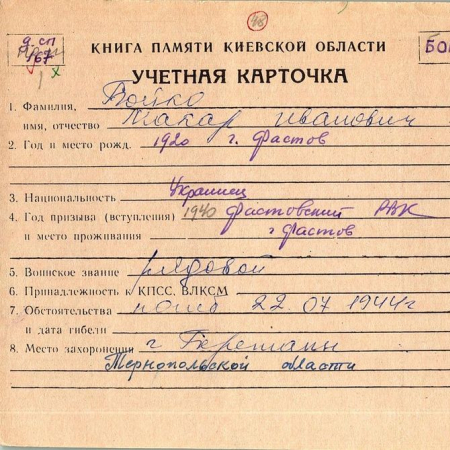 48
д. сп
167
х
КНИГА ПАМЯТИ КИЕВСКОЙ ОБЛАСТИ
БОЙ
УЧЕТНАЯ КАРТОЧКА
1. Фамилия, Бойко
имя, отчество Макар Иванович
2. Год и место рожд. 1920 г. Фастов
3. Национальность Украинец
4. Год призыва (вступления) 1940 Фастовский РВК
и место проживания г Фастов
5. Воинское звание рядовой
6. Принадлежность к КПСС, ВЛКСМ
7. Обстоятельства погиб 22.07 1944г
и дата гибели
8. Место захоронения г Бережаны
Тернопольской области